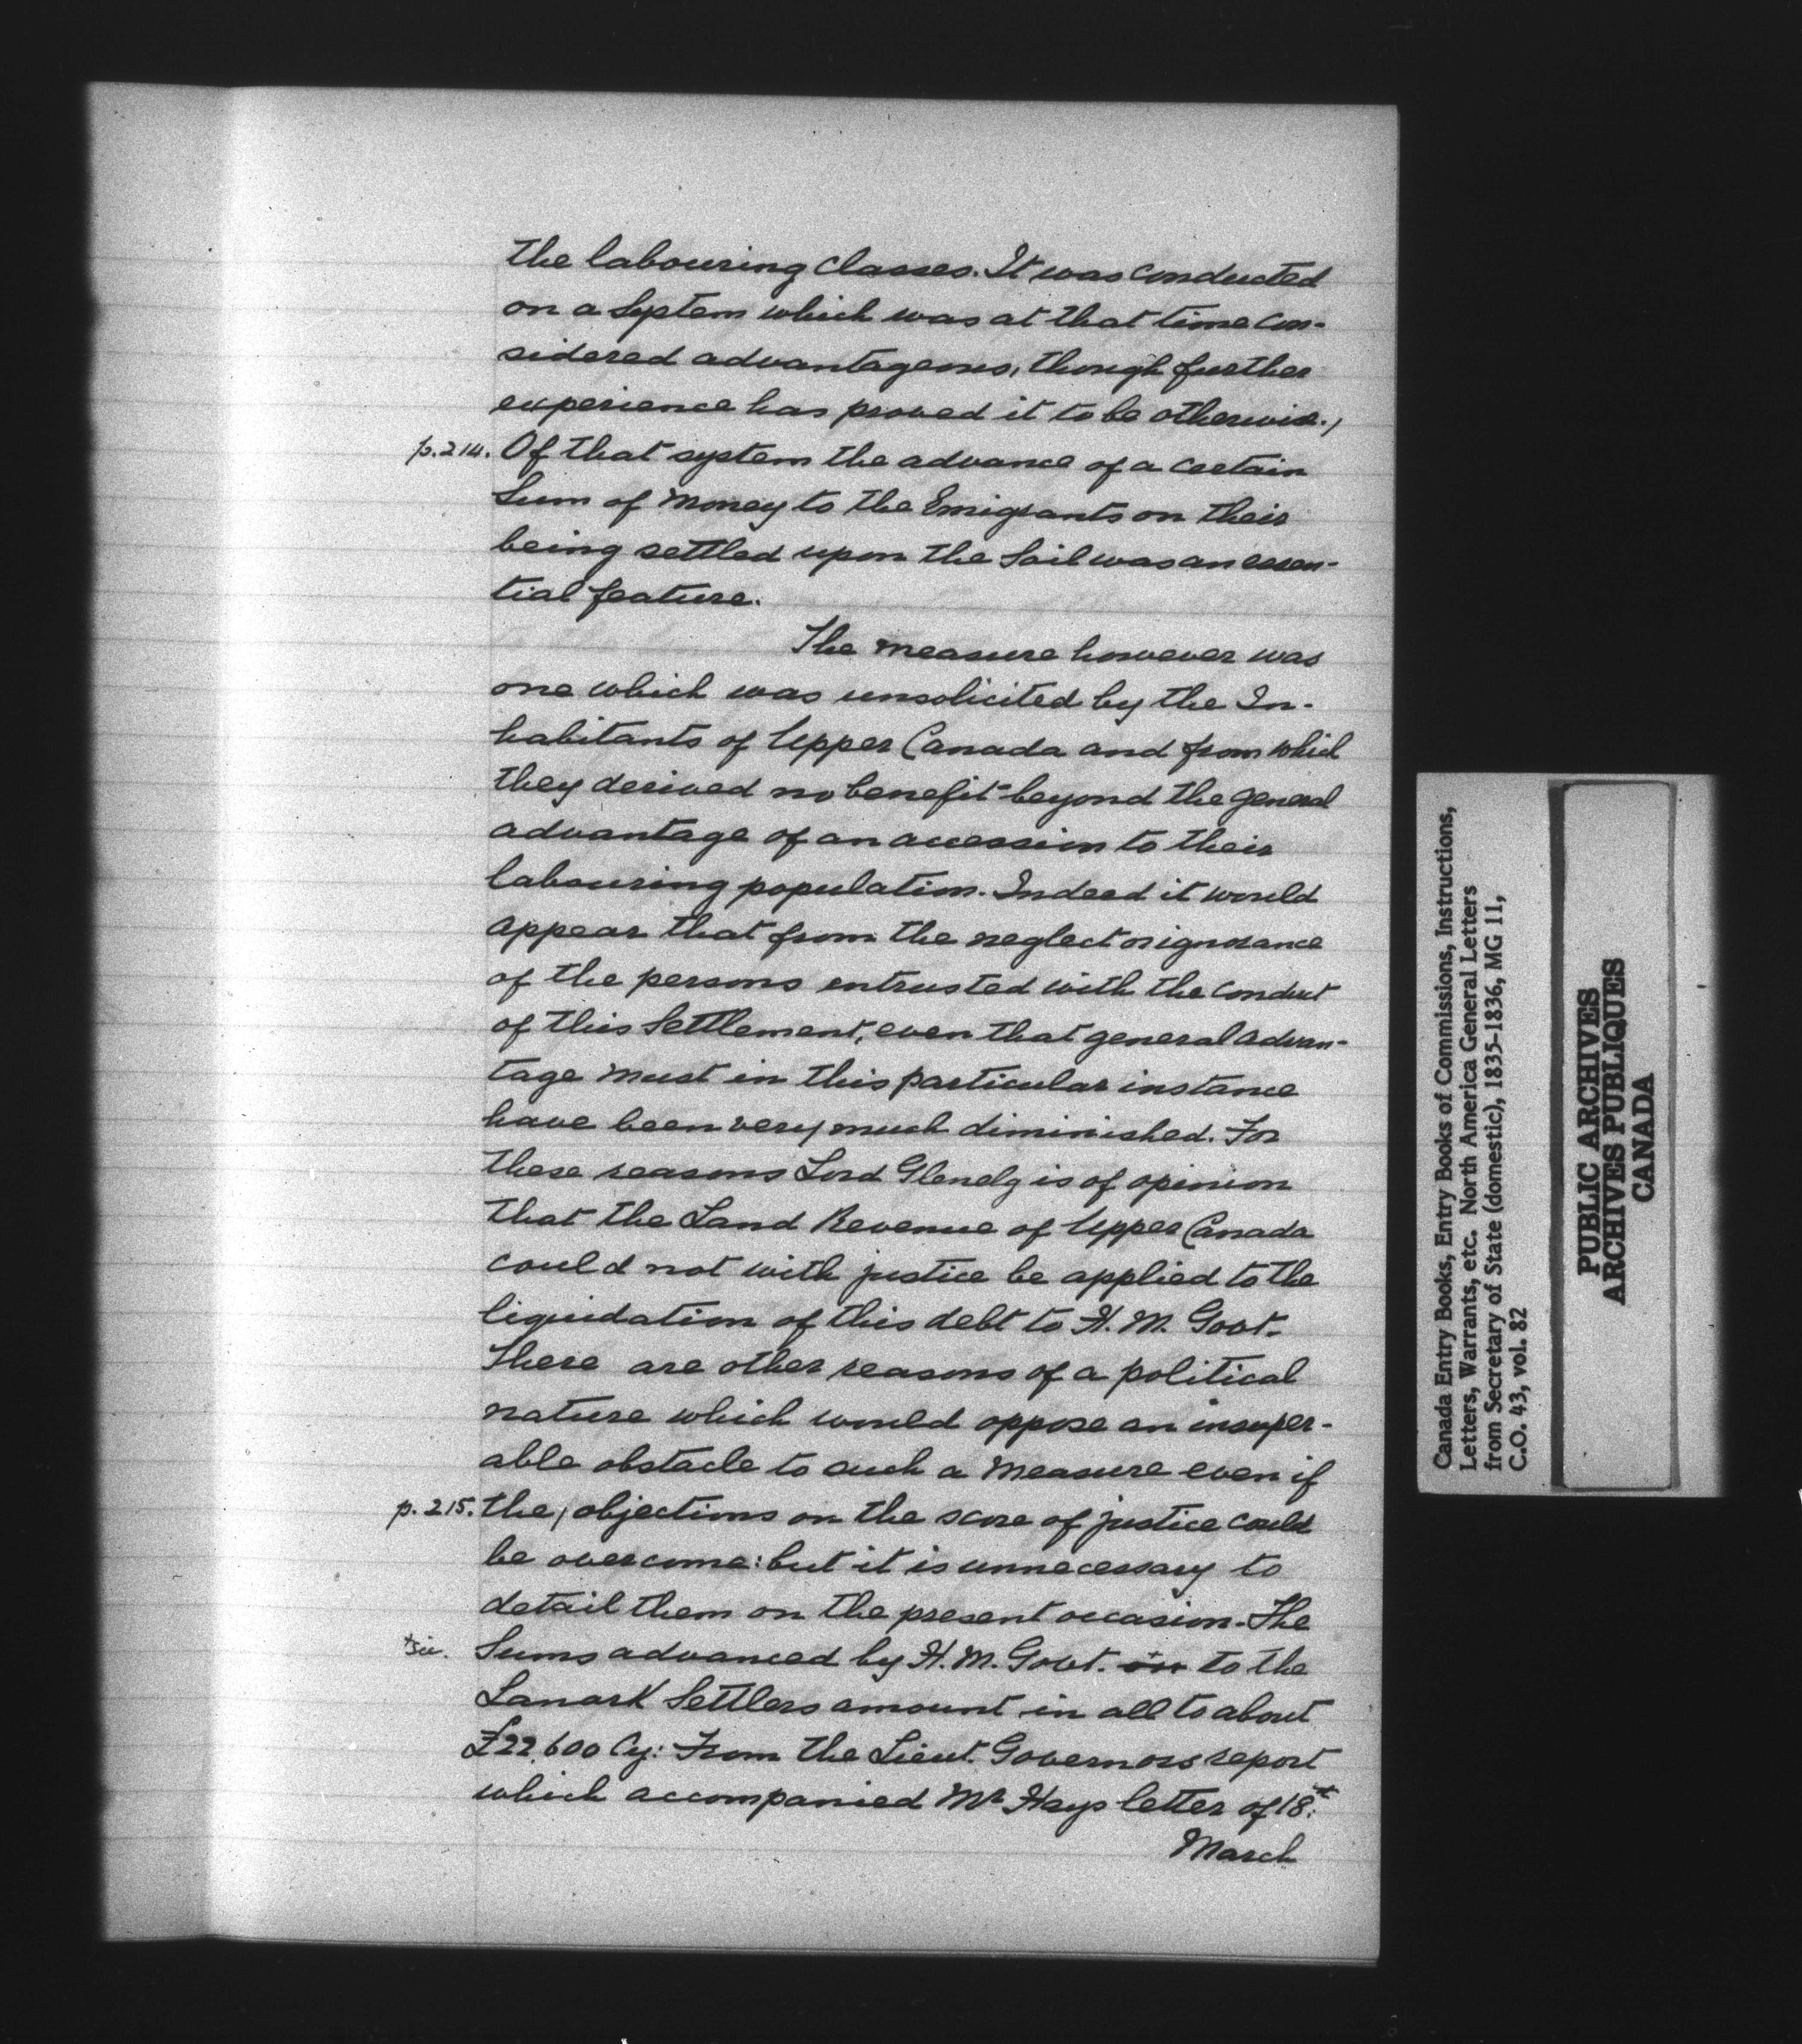 the labouring classes. It was conducted
on a System which was at that time con-
sidered advantageous, though further
experience has proved it to be otherwise./
p.214. Of that system the advance of a certain
Sum of Money to the Emigrants on their
being settled upon the Soil was an essen-
tial feature.
The measure however was
one which was unsolicited by the In-
habitants of Upper Canada and from which
they derived no benefit beyond the general
advantage of an accession to their
labouring population. Indeed it would
appear that from the neglect or ignorance
of the persons entrusted with the conduct
of this Settlement, even that general advan-
tage must in this particular instance
have been very much diminished. For
these reasons Lord Glenelg is of opinion
that the Land Revenue of Upper Canada
could not with justice be applied to the
liquidation of this debt to H. M. Govt.
There are other reasons of a political
nature which would oppose an insuper-
able obstacle to such a Measure even if
p. 215. the / objections on the score of justice could
be overcome: but it is unnecessary to
detail them on the present occasion. The
+sic. Sums advanced by H. M. Govt. to the
Lanark Settlers amount in all to about
£22,600 Cy: From the Lieut. Governors report
which accompanied Mr Hays letter of 18.
March
Canada Entry Books, Entry Books of Commissions, Instructions,
Letters, Warrants, etc. North America General Letters
from Secretary of State (domestic), 1835-1836, MG 11,
C.O. 43, vol. 82
PUBLIC ARCHIVES
ARCHIVES PUBLIQUES
CANADA